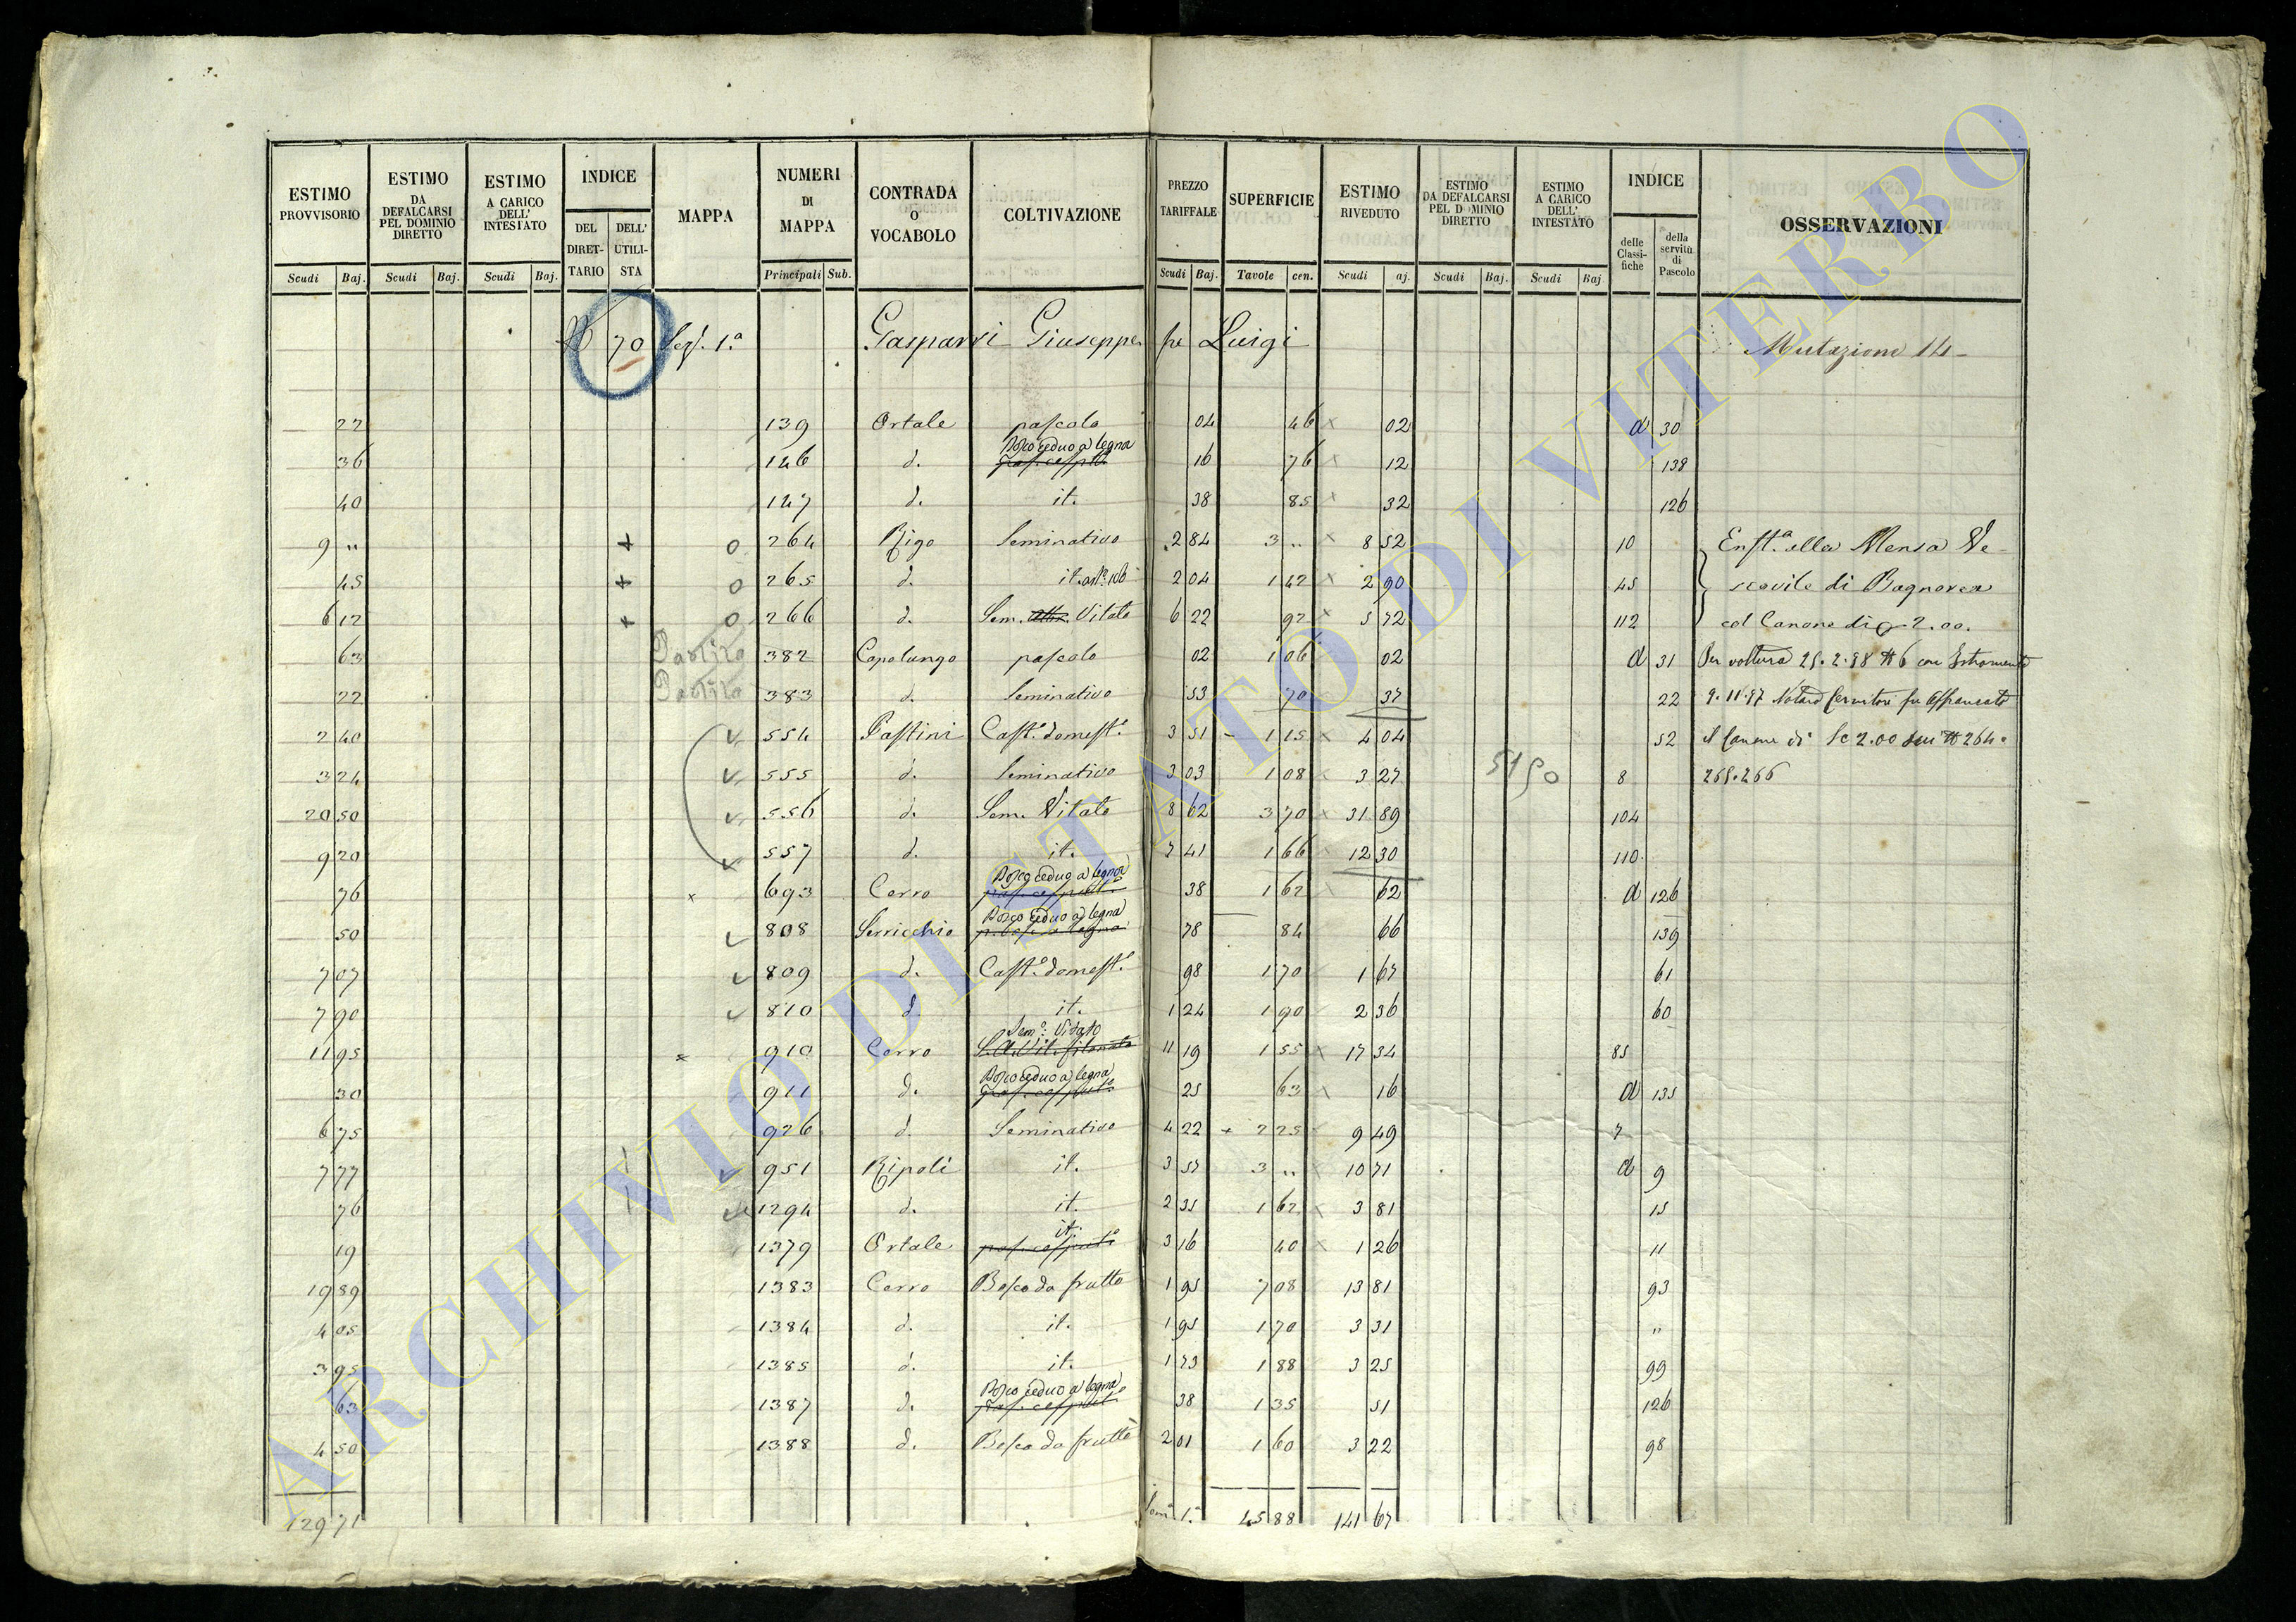 ESTIMO PROVVISORIO | ESTIMO DA DEFALCARSI PEL DOMINIO DIRETTO | ESTIMO A CARICO DELL' INTESTATO | INDICE | MAPPA | NUMERI DI MAPPA | CONTRADA O VOCABOLO | COLTIVAZIONE | PREZZO TARIFFALE | SUPERFICIE | ESTIMO RIVEDUTO | ESTIMO DA DEFALCARSI PEL DOMINIO DIRETTO | ESTIMO A CARICO DELL' INTESTATO | INDICE | OSSERVAZIONI
DEL DIRETTARIO | DELL' UTILISTA | delle Classifiche | della servitù di Pascolo
Scudi | Baj. | Scudi | Baj. | Scudi | Baj. | Principali | Sub. | Scudi | Baj. | Tavole | cen. | Scudi | aj. | Scudi | Baj. | Scudi | Baj
70 Sez. 1.ª Gasparri Giuseppe fu Luigi Mutazione 14
22 | 139 | Ortale | pascolo | 04 | 46 | 02 | d | 30
36 | 146 | d. | Bosco ceduo a legna | 16 | 76 | 12 | 138
40 | 147 | d. | it. | 38 | 85 | 32 | 126
9 " | + | 0 | 264 | Rigo | Seminativo | 2 84 | 3 " | 8 52 | 10 | Enft.ª alla Mensa Ve-
45 | + | 0 | 265 | d. | it. | 2 04 | 1 42 | 2 90 | 45 | scovile di Bagnorea
6 12 | + | 0 | 266 | d. | Sem. Vitato | 6 22 | 92 | 5 72 | 112 | col Canone di 2.00.
63 | Partita | 382 | Capolungo | pascolo | 02 | 1 06 | 02 | d | 31 | Per voltura 25.2.98 N 6 con Istromento
22 | Partita | 383 | d. | Seminativo | 53 | 70 | 37 | 22 | 9.11.97 Notaro fu affrancato
2 40 | 554 | Pastini | Cast.º domest.º | 3 51 | 1 15 | 4 04 | 52 | il Canone di Sc 2.00 sui N 264.
3 24 | 555 | d. | Seminativo | 3 03 | 1 08 | 3 27 | 51 50 | 8 | 265.266
20 50 | 556 | d. | Sem. Vitato | 8 62 | 3 70 | 31 89 | 104
9 20 | 557 | d. | it. | 7 41 | 1 66 | 12 30 | 110
76 | x | 693 | Cerro | Bosco ceduo a legna | 38 | 1 62 | 62 | d | 126
50 | 808 | Serricchio | Bosco ceduo a legna | 78 | 84 | 66 | 139
7 07 | 809 | d. | Cast.º domest.º | 98 | 1 70 | 1 67 | 61
7 90 | 810 | d | it. | 1 24 | 1 90 | 2 36 | 60
11 95 | x | 910 | Cerro | Sem.º Vitato | 11 19 | 1 55 | 17 34 | 85
30 | 911 | d. | Bosco ceduo a legna | 25 | 63 | 16 | d | 135
6 75 | 926 | d. | Seminativo | 4 22 | 2 25 | 9 49 | 7
7 77 | 951 | Ripoli | it. | 3 57 | 3 " | 10 71 | d | 9
76 | 1294 | d. | it. | 2 35 | 1 62 | 3 81 | 15
19 | 1379 | Ortale | it. | 3 16 | 40 | 1 26 | 11
19 89 | 1383 | Cerro | Bosco da frutto | 1 95 | 7 08 | 13 81 | 93
4 05 | 1384 | d. | it. | 1 95 | 1 70 | 3 31 | "
3 95 | 1385 | d. | it. | 1 73 | 1 88 | 3 25 | 99
63 | 1387 | d. | Bosco ceduo a legna | 38 | 1 35 | 51 | 126
4 50 | 1388 | d. | Bosco da frutto | 2 01 | 1 60 | 3 22 | 98
129 71 | 45 88 | 141 67
ARCHIVIO DI STATO DI VITERBO